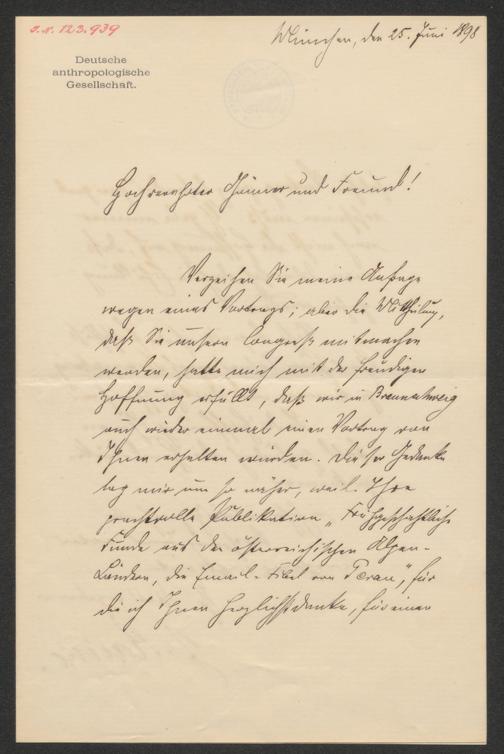 I.N. 123.939
München, den 25. Juni 1898
Deutsche
anthropologische
Gesellschaft.
Hochverehrter Gönner und Freund!
Verzeihen Sie meine Anfrage
wegen eines Vortrags; aber die Mittheilung,
daß Sie unsern Congreß mitmachen
werden, hatte mich mit der freudigen
Hoffnung erfüllt, daß wir in Braunschweig
auch wieder einmal einen Vortrag von
Ihnen erhalten würden. Dieser Gedanke
lag mir um so näher, weil Ihre
prachtvolle Publikation „Frühgeschichtliche
Funde aus den österreichischen Alpen-
Ländern, die Email-Fibel von Perau", für
die ich Ihnen herzlichst danke, für einen